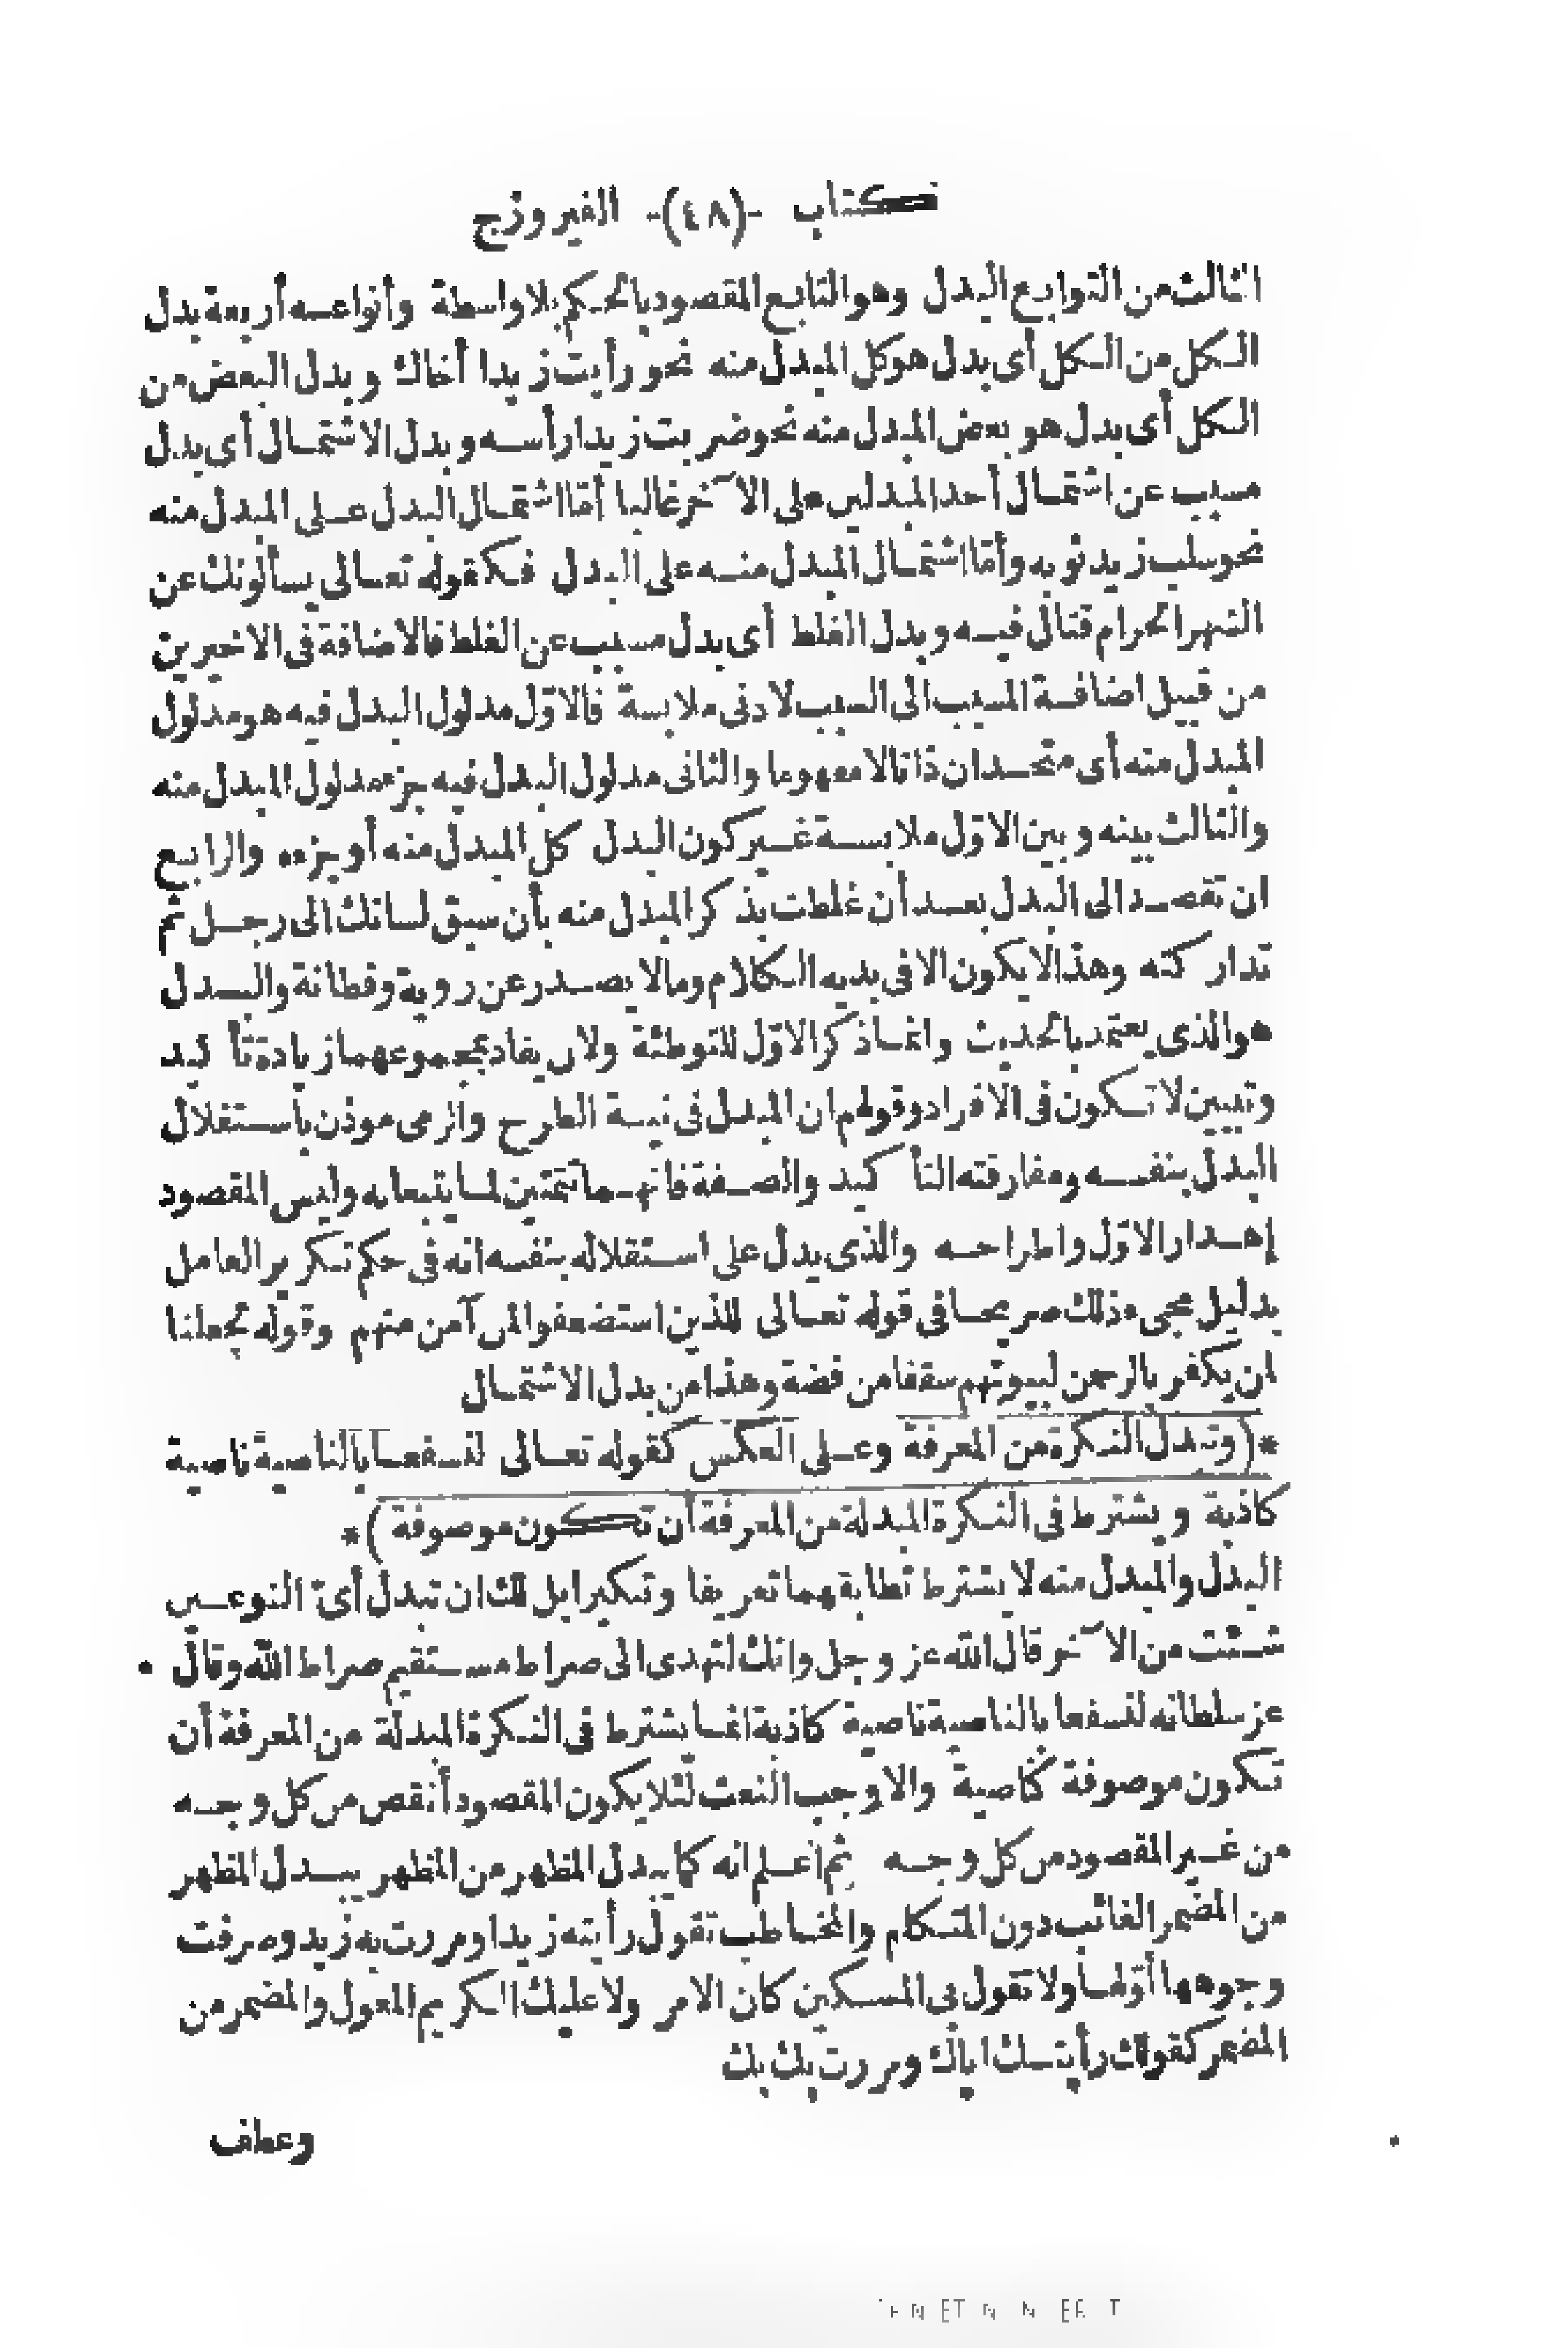 كتاب -(٤٨)- الفيروزج
الثالث من التوابع البدل وهو التابع المقصود بالحكم بلا واسطة وأنواعه أربعة بدل
الكل من الكل أى بدل هو كل المبدل منه نحو رأيت زيدا أخاك وبدل البعض من
الكل أى بدل هو بعض المبدل منه نحو ضربت زيدا رأسه وبدل الاشتمال أى بدل
مسبب عن اشتمال أحد المبدلين على الآخر غالبا أمّا اشتمال البدل على المبدل منه
نحو سلب زيد ثوبه وأمّا اشتمال المبدل منه على البدل فكقوله تعالى يسألونك عن
الشهر الحرام قتال فيه وبدل الغلط أى بدل مسبب عن الغلط فالاضافة فى الاخيرين
من قبيل اضافة المسبب الى السبب لادنى ملابسة فالاوّل مدلول البدل فيه هو مدلول
المبدل منه أى متحدان ذاتا لا مفهوما والثانى مدلول البدل فيه جزء مدلول المبدل منه
والثالث بينه وبين الاوّل ملابسة غير كون البدل كل المبدل منه أو جزءه والرابع
ان تقصد الى البدل بعد أن غلطت بذكر المبدل منه بأن سبق لسانك الى رجل ثم
تداركته وهذا لا يكون الا فى بديه الكلام وما لا يصدر عن روية وفطانة والبدل
هو الذى يعتمد بالحديث وانما ذكر الاوّل للتوطئة ولان يفاد بمجموعهما زيادة تأكيد
وتبيين لا تكون فى الافراد وقولهم ان المبدل فى نية الطرح والرمى موذن باستقلال
البدل بنفسه ومفارقته التأكيد والصفة فانهما تتمتين لما يتبعانه وليس المقصود
إهدار الاوّل واطراحه والذى يدل على استقلاله بنفسه انه فى حكم تكرير العامل
بدليل مجىء ذلك صريحا فى قوله تعالى للذين استضعفوا لمن آمن منهم وقوله لجعلنا
لمن يكفر بالرحمن لبيوتهم سقفا من فضة وهذا من بدل الاشتمال
*(وتبدل النكرة من المعرفة وعلى العكس كقوله تعالى لنسفعا بالناصية ناصية
كاذبة ويشترط فى النكرة المبدلة من المعرفة أن تكون موصوفة)*
البدل والمبدل منه لا يشترط تطابقهما تعريفا وتنكيرا بل لك ان تبدل أىّ النوعين
شئت من الآخر قال الله عز وجل وانك لتهدى الى صراط مستقيم صراط الله وقال
عز سلطانه لنسفعا بالناصية ناصية كاذبة انما يشترط فى النكرة المبدلة من المعرفة أن
تكون موصوفة كناصية والا وجب النعت لئلا يكون المقصود أنقص من كل وجه
من غير المقصود من كل وجه ثم اعلم انه كما يبدل المظهر من المظهر يبدل المظهر
من المضمر الغائب دون المتكلم والمخاطب تقول رأيته زيدا ومررت به زيد وصرفت
وجوهها أوّلها ولا تقول بى المسكين كان الامر ولا عليك الكريم المعول والمضمر من
المضمر كقولك رأيتك اياك ومررت بك بك
وعطف